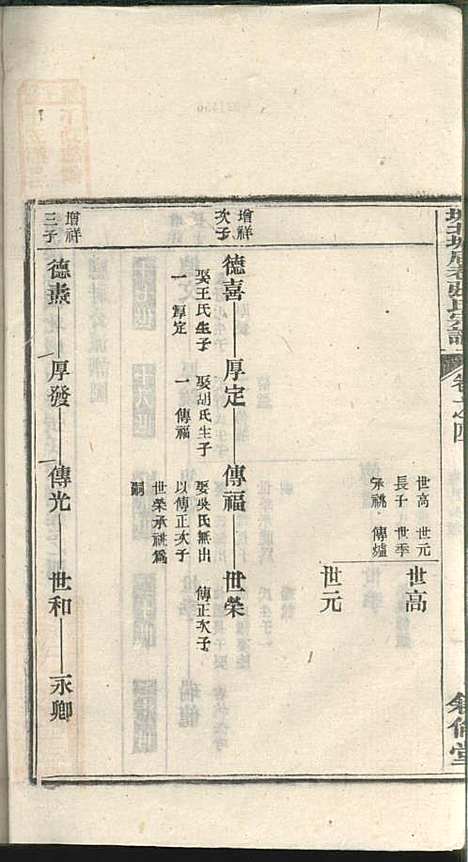 張氏宗譜
卷之四
敘倫堂
世高 世元
長子 世季
承祧 傳爐
世高
世元
增祥
次子
德喜
娶王氏生子
一 厚定
厚定
娶胡氏生子
一 傳福
傳福
娶吳氏無出
以傳正次子
世榮承祧爲
嗣
世榮
傳正次子
增祥
三子
德燾
厚發
傳光
世和
永卿